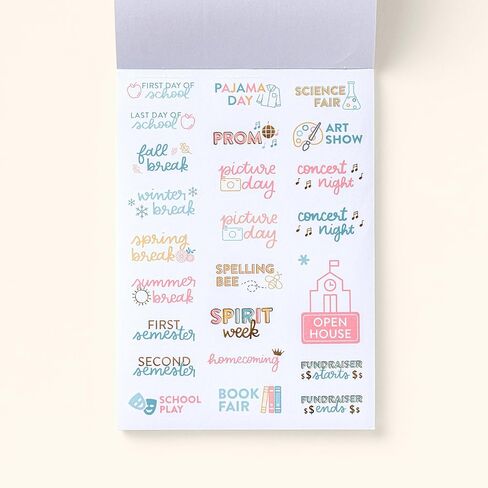 FIRST DAY OF
school
LAST DAY OF
school
fall
break
winter
break
spring
break
summer
break
FIRST
semester
SECOND
semester
SCHOOL
PLAY
PAJAMA
DAY
PROM
picture
day
picture
day
SPELLING
BEE
SPIRIT
week
homecoming
BOOK
FAIR
SCIENCE
FAIR
ART
SHOW
concert
night
concert
night
OPEN
HOUSE
FUNDRAISER
$$ starts $$
FUNDRAISER
$$ ends $$